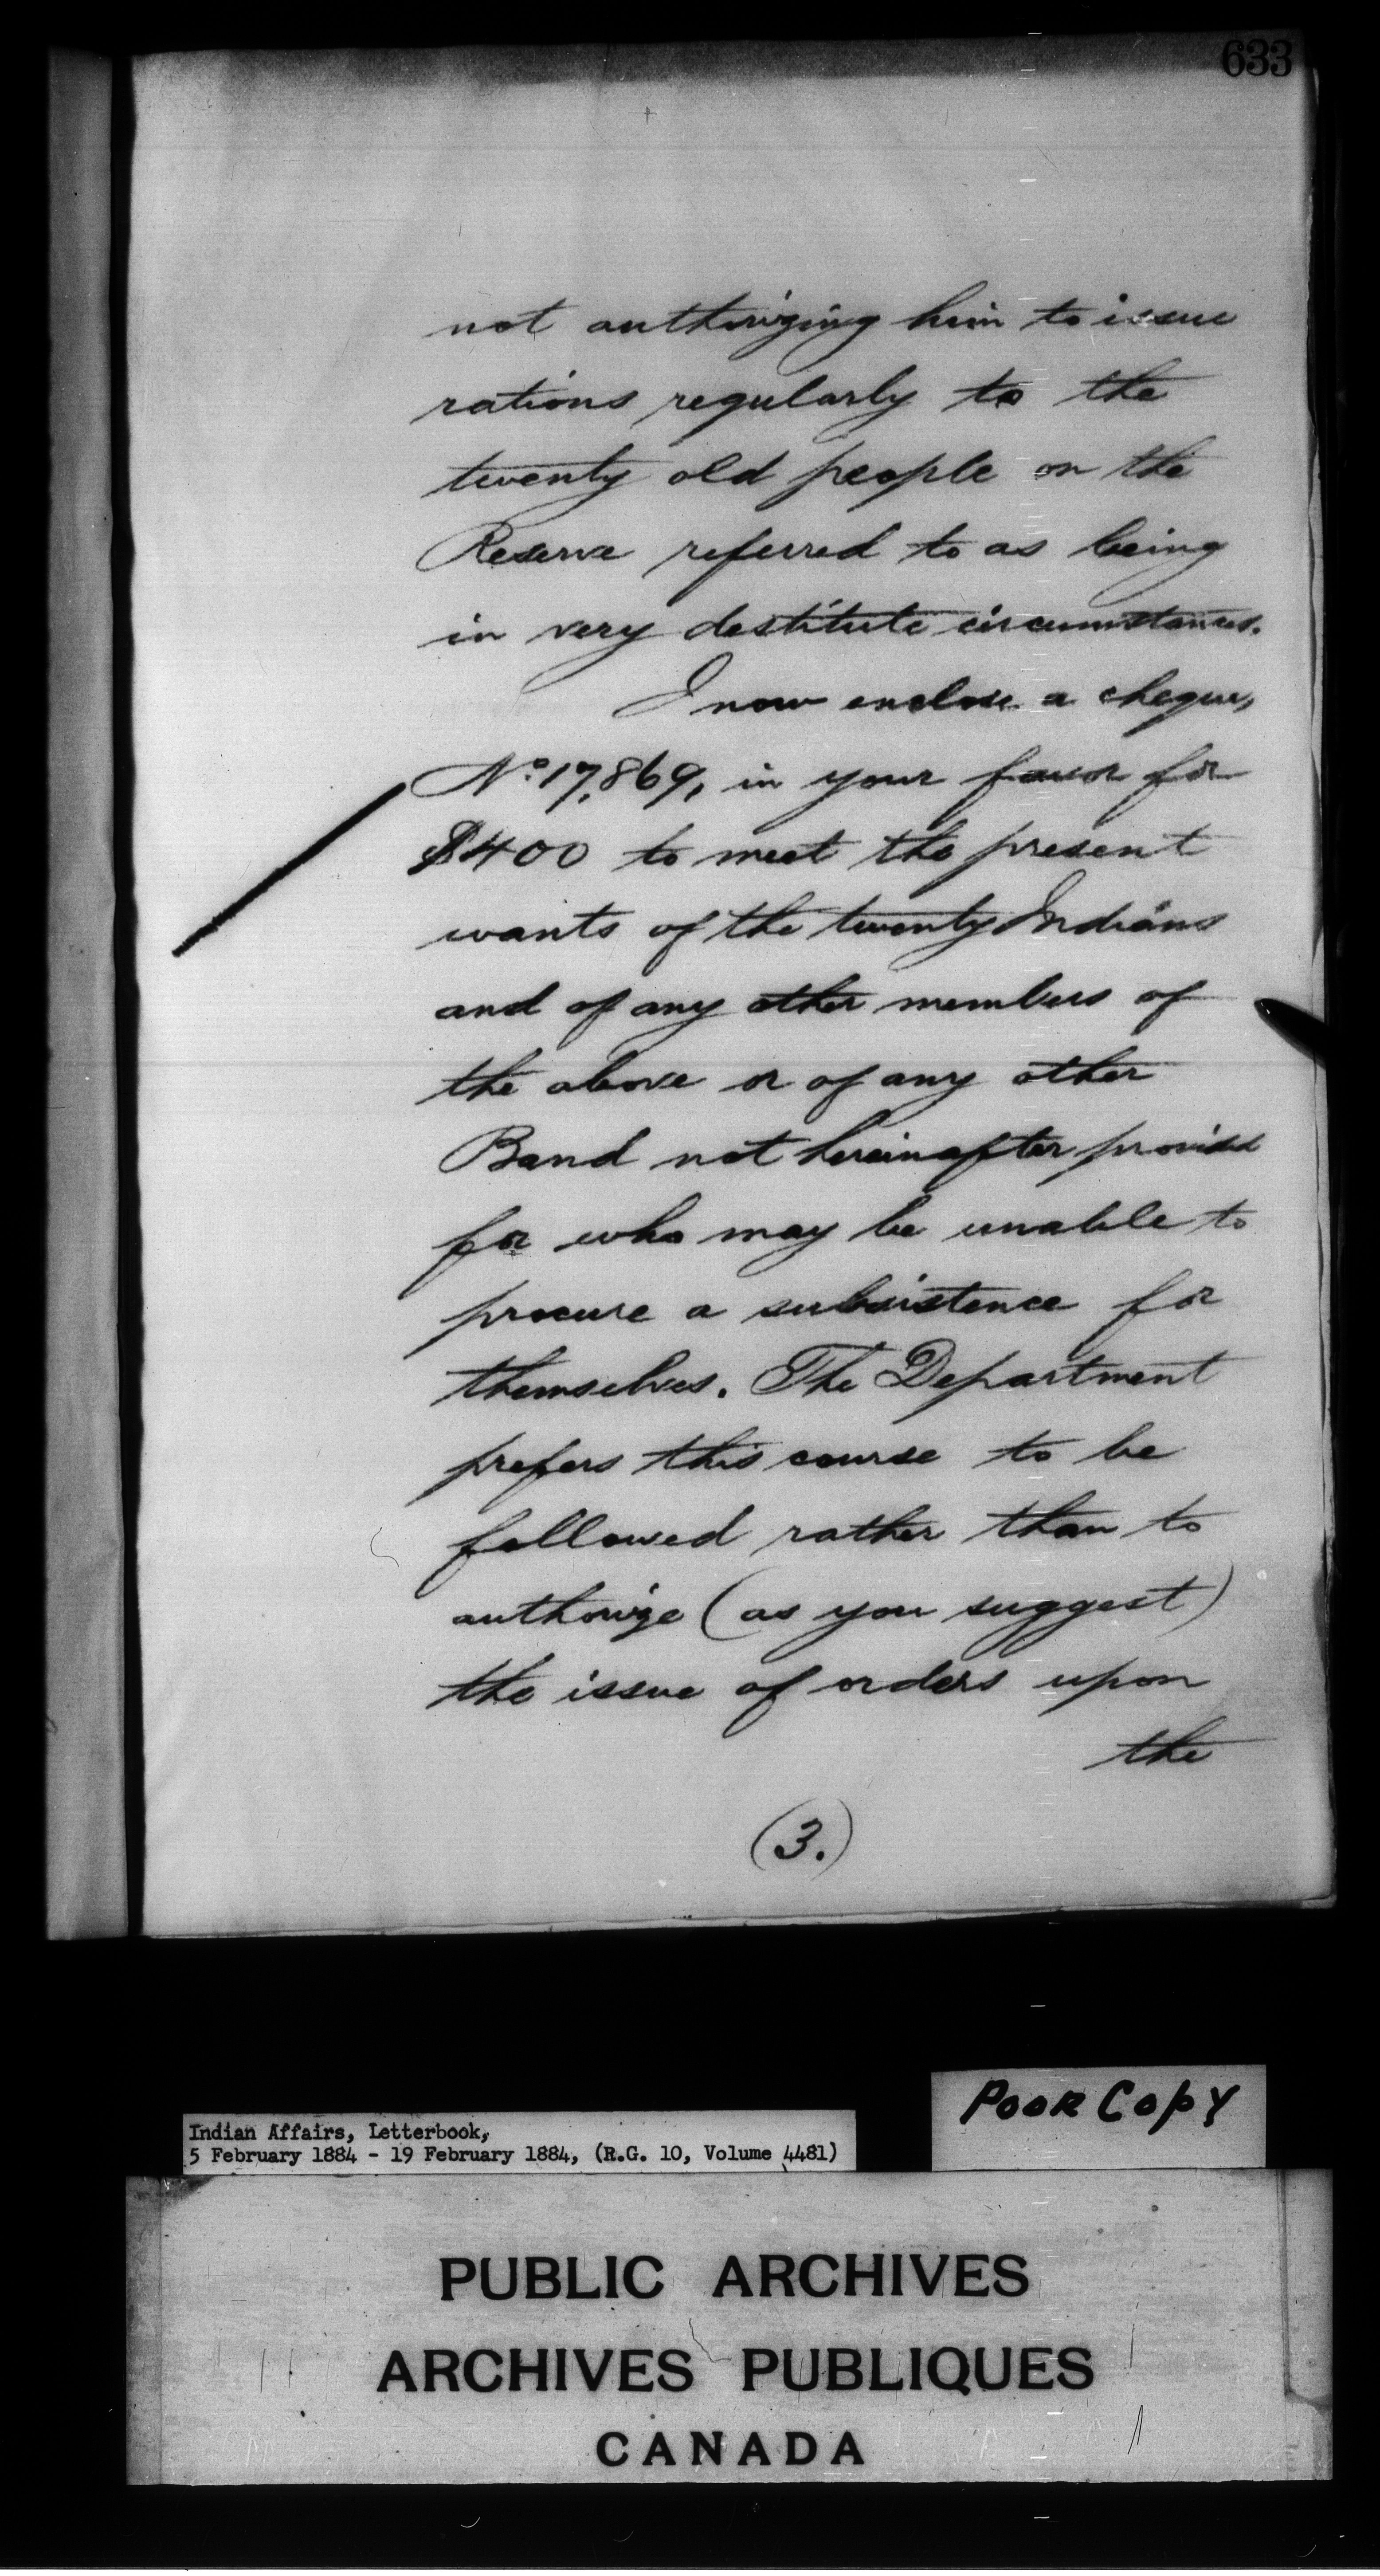 633
not authorizing him to issue
rations regularly to the
twenty old people on the
Reserve referred to as being
in very destitute circumstances.
I now enclose a cheque,
No. 17,869, in your favor for
$400 to meet the present
wants of the twenty Indians
and of any other members of
the above or of any other
Band not hereinafter provided
for who may be unable to
procure a subsistence for
themselves. The Department
prefers this course to be
followed rather than to
authorize (as you suggest)
the issue of orders upon
the
(3.)
Poor Copy
Indian Affairs, Letterbook,
5 February 1884 - 19 February 1884, (R.G. 10, Volume 4481)
PUBLIC ARCHIVES
ARCHIVES PUBLIQUES
CANADA